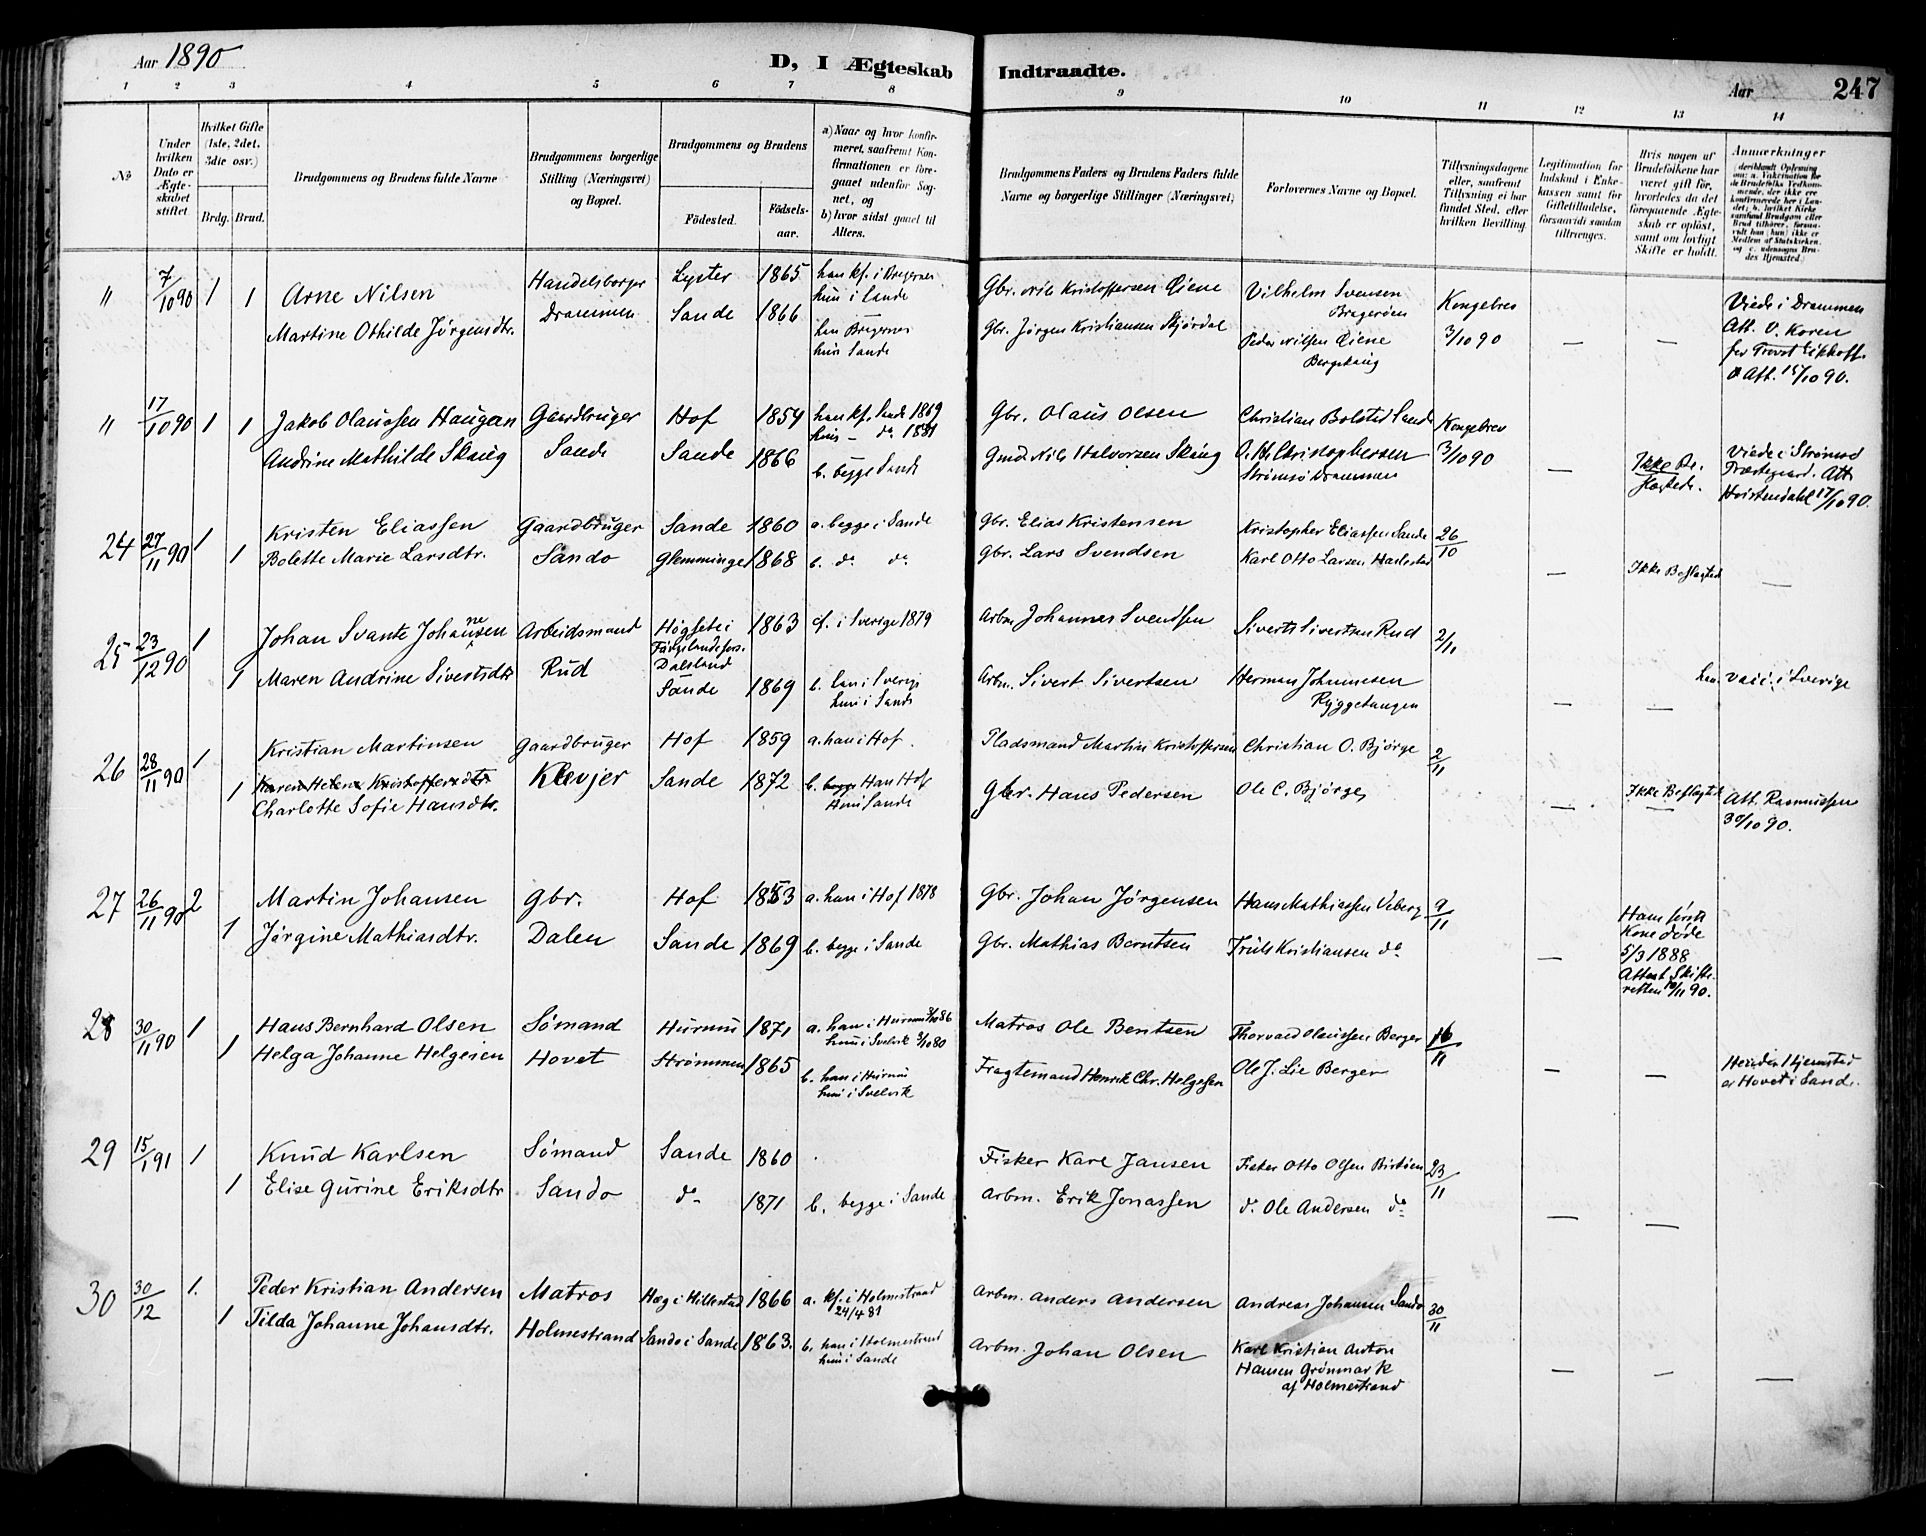 Aar 1890
D, I Ægteskab Indtraadte.
Aar
247
1 2 3 4 5 6 7 8 9 10 11 12 13 14
No
Under hvilken Dato er Ægteskabet stiftet
Hvilket Gifte (1ste, 2det, 3die osv.)
Brdg. Brud.
Brudgommens og Brudens fulde Navne
Brudgommens borgerlige Stilling (Næringsvei) og Bopæl.
Brudgommens og Brudens
Fødested.
Fødsels-aar.
a) Naar og hvor konfirmeret, saafremt Konfirmationen er foregaaet udenfor Sognet, og
b) hvor sidst gaaet til Alters.
Brudgommens Faders og Brudens Faders fulde Navne og borgerlige Stillinger (Næringsvei)
Forlovernes Navne og Bopæl.
Tillysningsdagene eller, saafremt Tillysning ei har fundet Sted, efter hvilken Bevilling.
Legitimation for Indskud i Enkekassen samt for Giftetilladelse, forsaavidt saadan tiltrænges.
Hvis nogen af Brudefolkene har været gift før, hvorledes da det foregaaende Ægteskab er opløst, samt om lovligt Skifte er holdt.
Anmerkninger
" 7/10 90 1 1 Arne Nilsen
Martine Othilde Jørgensdtr.
Handelsborger
Drammen
Lyster 1865
Sande 1866
han kf. i Bragernes
hun i Sande
han Bragernes
hun Sande
Gbr. Nils Kristoffersen Qiene
Gbr. Jørgen Kristiansen Skjørdal
Vilhelm Svensen
Bragerøen
Peder Nilsen Qiene
Kongebrev
3/10 90
Viede i Drammen
Att. V. Koren
for Provst Eckhoff
Att. 15/10 90.
" 17/10 90 1 1 Jakob Olaussen Haugan
Andrine Mathilde Skaug
Gaardbruger
Sande
Hof 1859
Sande 1866
han kf. Sande 1869
hun - do 1881
b. begge Sande
Gbr. Olaus Olsen
Gmd. Nils Halvorsen Skaug
Christian Bolstad Sande
Christophersen
Strømsø Drammen
Kongebrev
3/10 90
Ikke Be-
slægtede.
Viede i Strømsø
Præstegaard. Att.
Hvistendahl 17/10 90.
24 27/11 90 1 1 Kristen Eliassen
Bolette Marie Larsdtr.
Gaardbruger
Sando
Sande 1860
Glemminge 1868
a. begge i Sande
b. do do
Gbr. Elias Kristensen
Gbr. Lars Svendsen
Kristopher Eliassen Sande
Karl Otto Larsen Harlestad
26/10
Ikke Beslægted
25 23/12 90 1 1 Johan Svante Johannesen
Maren Andrine Sivertsdtr
Arbeidsmand
Rud
Høgsete i
Färgelandsfors.
Dalsland
Sande
1863
1869
cf. i Sverige 1879
b. han i Sverige
hun i Sande
Arbm Johannes Svendsen
Arbm. Sivert Sivertsen
Sivert Sivertsen Rud
Herman Johannesen
Ryggetangen
2/11
han vacc. i Sverige
26 28/11 90 1 1 Kristian Martinsen
Karen Helene Kristoffersdtr
Charlotte Sofie Hansdtr.
Gaardbruger
Klevjer
Hof 1859
Sande 1872
a. han i Hof.
b. begge Han Hof
Hun Sande
Pladsmand Martin Kristoffersen
Gbr. Hans Pedersen
Christian O. Bjørge
Ole C. Bjørge
2/11
Ikke Beslægted
Att. Rasmussen
30/10 90.
27 26/11 90 2 1 Martin Johansen
Jørgine Mathiasdtr.
Gbr.
Dalen
Hof 1853
Sande 1869
a. han i Hof 1878
b. begge i Sande
Gbr. Johan Jørgensen
Gbr. Mathias Berntsen
Hans Mathiassen Veberg
Truls Kristiansen do
9/11
Hans første
Kone døde
5/3 1888
Attest Skifte-
retten 10/11 90.
28 30/11 90 1 1 Hans Bernhard Olsen
Helga Johanne Helgesen
Sømand
Hovet
Hurum 1871
Strømmen 1865
a. han i Hurum 3/10 86
hun i Svelvik 3/10 80
b. han i Hurum
hun i Svelvik
Matros Ole Bentsen
Fragtemand Henrik Chr. Helgesen
Thorvard Olaussen Berger
Ole J. Lie Berger
16/11
Hendes Hjemsted
er Hovet i Sande.
29 15/1 91 1 1 Knud Karlsen
Elise Gurine Eriksdtr
Sømand
Sando
Sande 1860
do 1871
b. begge i Sande
Fisker Karl Jansen
Arbm. Erik Jonassen
Fisker Otto Olsen Birtøien
do Ole Andersen do
23/11
30 30/12 1. 1 Peder Kristian Andersen
Tilda Johanne Johansdtr.
Matros
Holmestrand
Hæg i Hillestad 1866
Sando i Sande 1863.
a. kf. i Holmestrand
24/4 81
b. han i Holmestrand
hun i Sande
Arbm. Anders Andersen
Arbm. Johan Olsen
Andreas Johansen Sando
Karl Kristian Anton
Hansen Grønmark
af Holmestrand
30/11